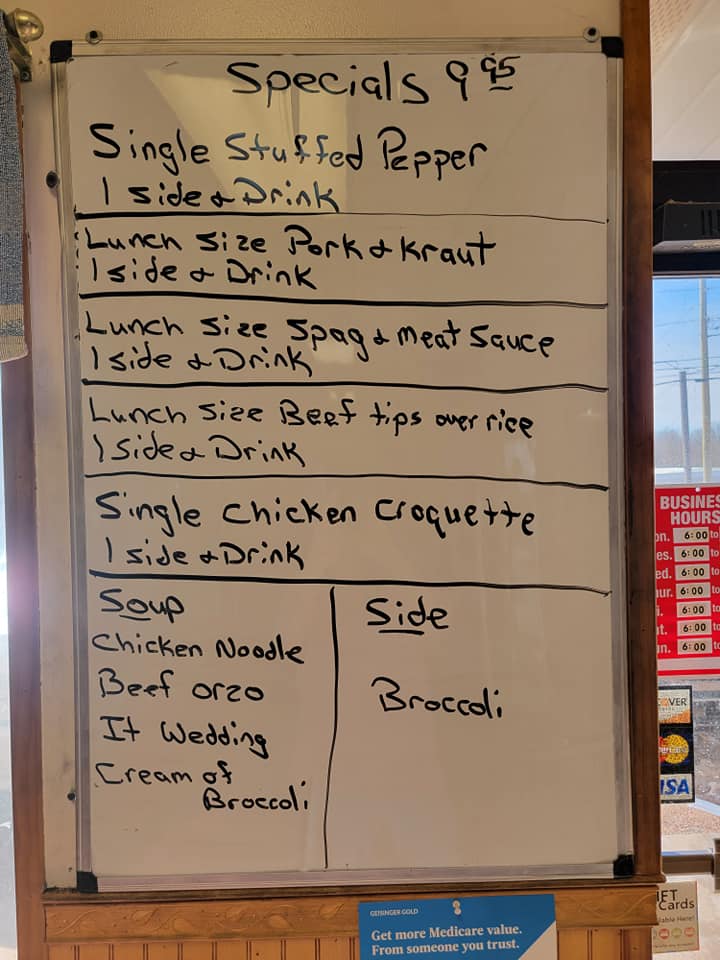 Specials 9 95
Single Stuffed Pepper
1 side & Drink
Lunch size Pork & Kraut
1 side & Drink
Lunch size Spag & Meat Sauce
1 side & Drink
Lunch size Beef tips over rice
1 Side & Drink
Single Chicken Croquette
1 side & Drink
Soup
Chicken Noodle
Beef orzo
It Wedding
Cream of
Broccoli
Side
Broccoli
BUSINES
HOURS
on. 6:00 to
es. 6:00 to
ed. 6:00 to
ur. 6:00 to
i. 6:00 to
t. 6:00 to
un. 6:00 to
OVER
ISA
IFT
Cards
lable Here!
GEISINGER GOLD
Get more Medicare value.
From someone you trust.